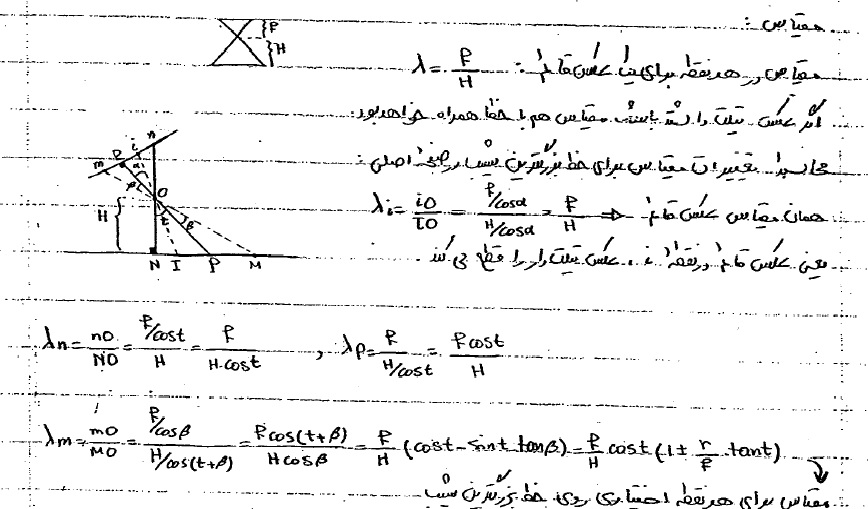 مقیاس :
F
H
مقیاس در هر نقطه برای یک عکس قائم : λ = F/H
اگر عکس تیلت داشته باشد مقیاس هم با خطا همراه خواهد بود.
محاسبه تغییرات مقیاس برای خط بزرگترین شیب در صفحه اصلی :
همان مقیاس عکس قائم ⇒ λi = iO/IO = (F/cosα)/(H/cosα) = F/H
یعنی عکس قائم در نقطه i ، عکس تیلت دار را قطع می کند.
n
i
P
m
O
H
t
β
N I P M
λn = nO/NO = (F/cost)/H = F/(H·cost) , λp = F/(H/cost) = Fcost/H
λm = mO/MO = (F/cosβ)/(H/cos(t+β)) = Fcos(t+β)/(Hcosβ) = F/H (cost - sint tanβ) = F/H cost (1 ± r/F tant)
مقیاس برای هر نقطه اختیاری روی خط بزرگترین شیب